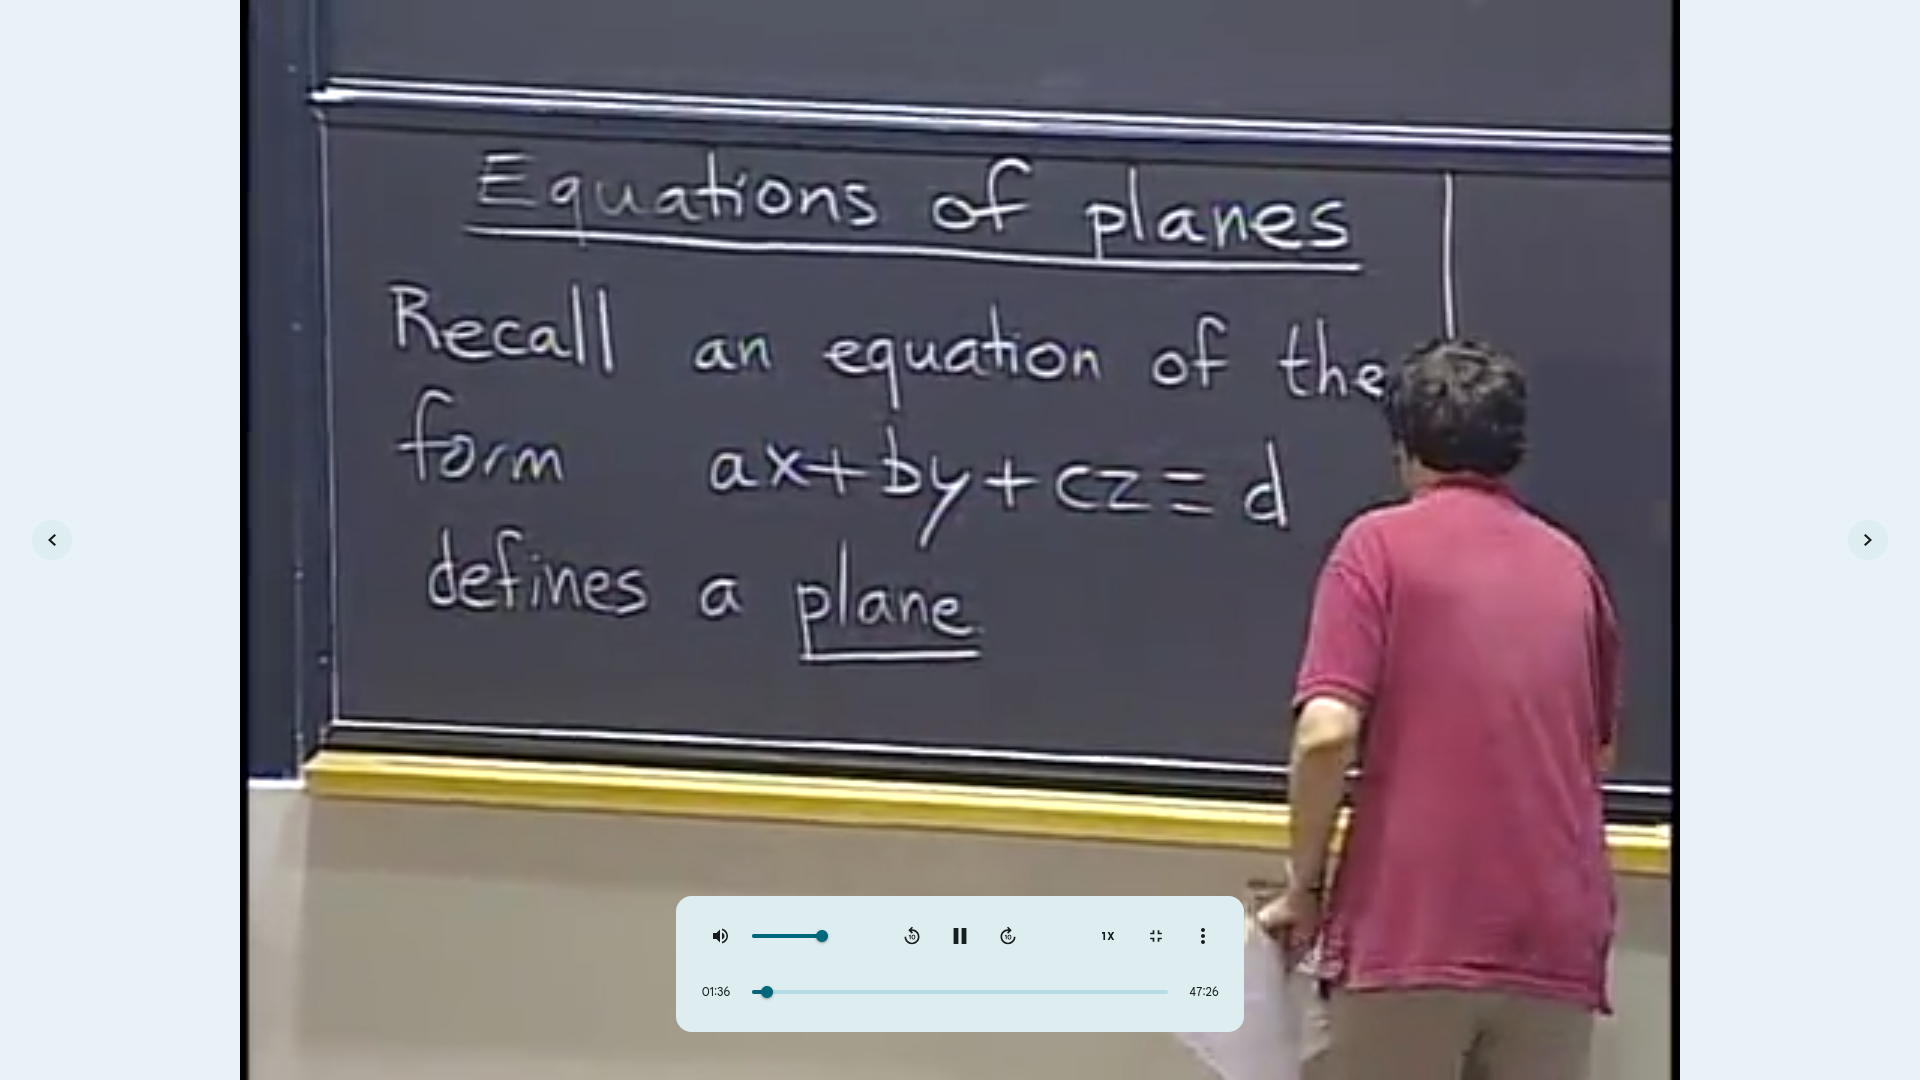 Equations of planes
Recall an equation of the
form ax+by+cz = d
defines a plane
1X
01:36
47:26